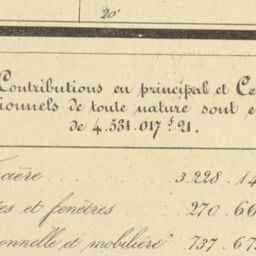 20
Contributions en principal et Ce
ionnels de toute nature sont e
de 4.531.017 f. 21.
cière . . . 3.228.14
es et fenêtres 270.66
onnelle et mobilière 737.67